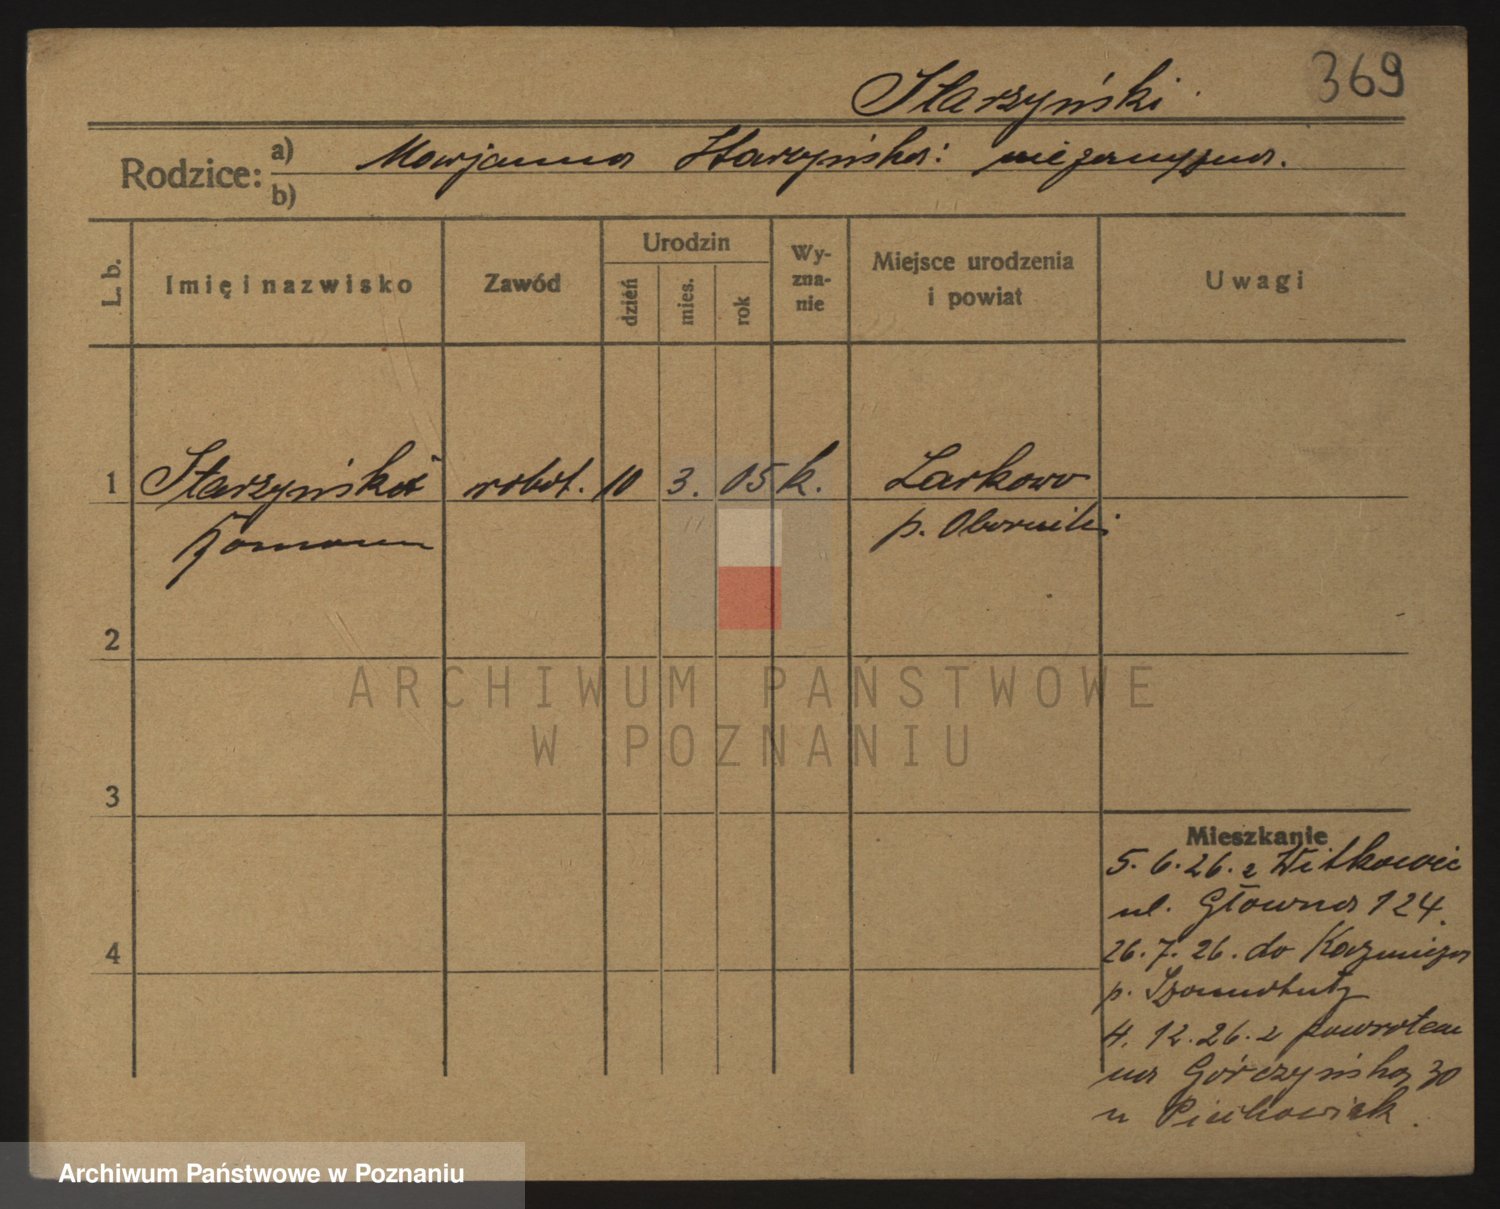 369
Starzyński
Rodzice:
a) Marjanna Starzyńska: niezamężna.
b)
L. b.
Imię i nazwisko
Zawód
Urodzin
dzień
mies.
rok
Wy-
zna-
nie
Miejsce urodzenia
i powiat
Uwagi
1 Starzyński robot. 10 3. 05 k. Larkowo
Roman p. Oborniki
2
3
4
Mieszkanie
5. 6. 26. z Witkowic
ul. Główna 124.
26. 7. 26. do Kazmierza
p. Szamotuły
4. 12. 26. z powrotem
na Górczyńska 30
u Piechowiak.
ARCHIWUM PAŃSTWOWE
W POZNANIU
Archiwum Państwowe w Poznaniu